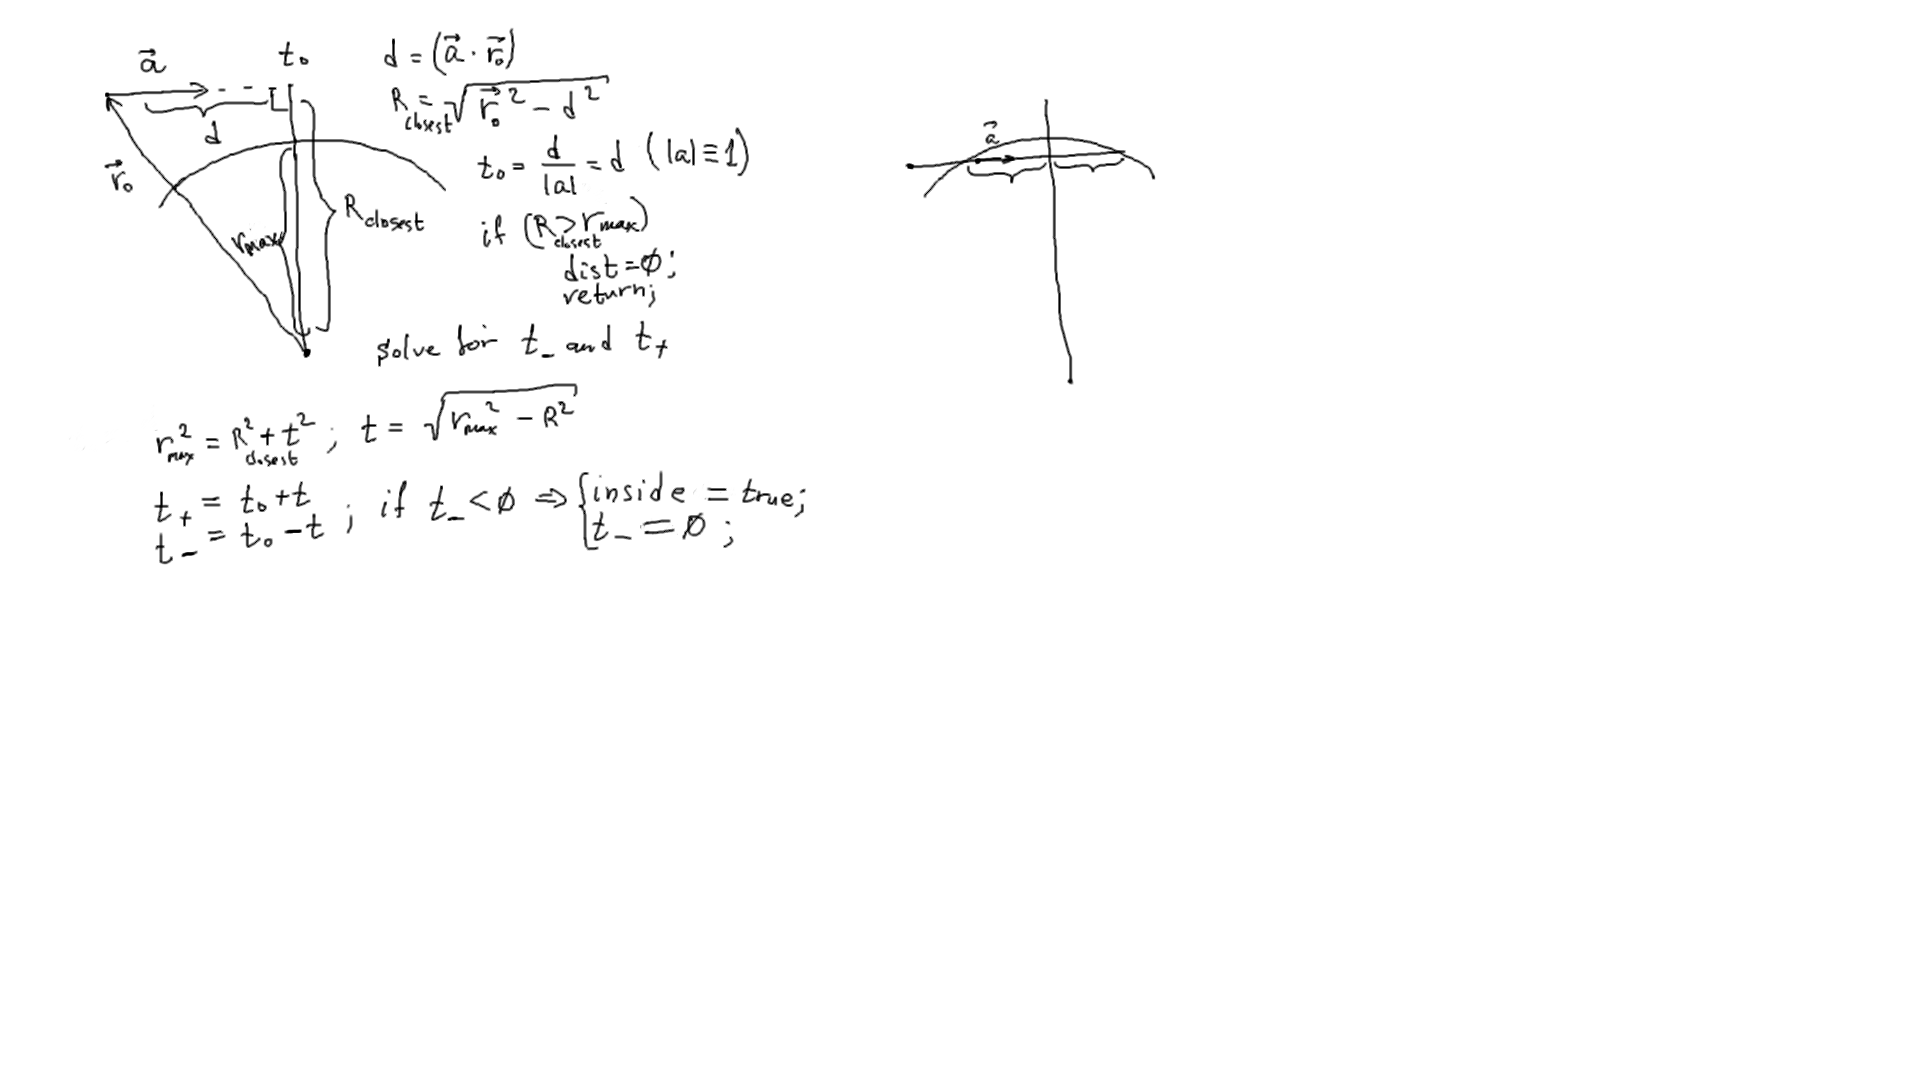 a⃗
t₀
d
r⃗₀
r_max
R_closest
d = (a⃗ · r⃗₀)
R_closest = √(r⃗₀² − d²)
t₀ = d/|a| = d (|a| ≡ 1)
if (R_closest > r_max)
dist = ∅;
return;
solve for t₋ and t₊
r_max² = R_closest² + t² ; t = √(r_max² − R²)
t₊ = t₀ + t
t₋ = t₀ − t ; if t₋ < ∅ ⇒ { inside = true;
t₋ = ∅ ;
a⃗